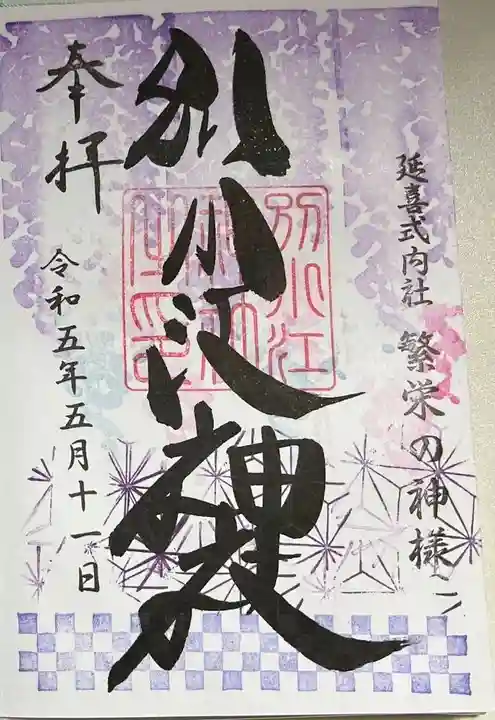 延喜式内社 繁栄の神様
別小江神社
別小江
神社
奉拝
令和五年五月十一日